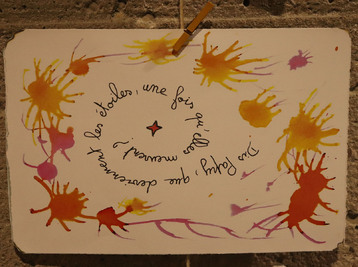 Dis Papy, que deviennent les étoiles, une fois qu'elles meurent ?